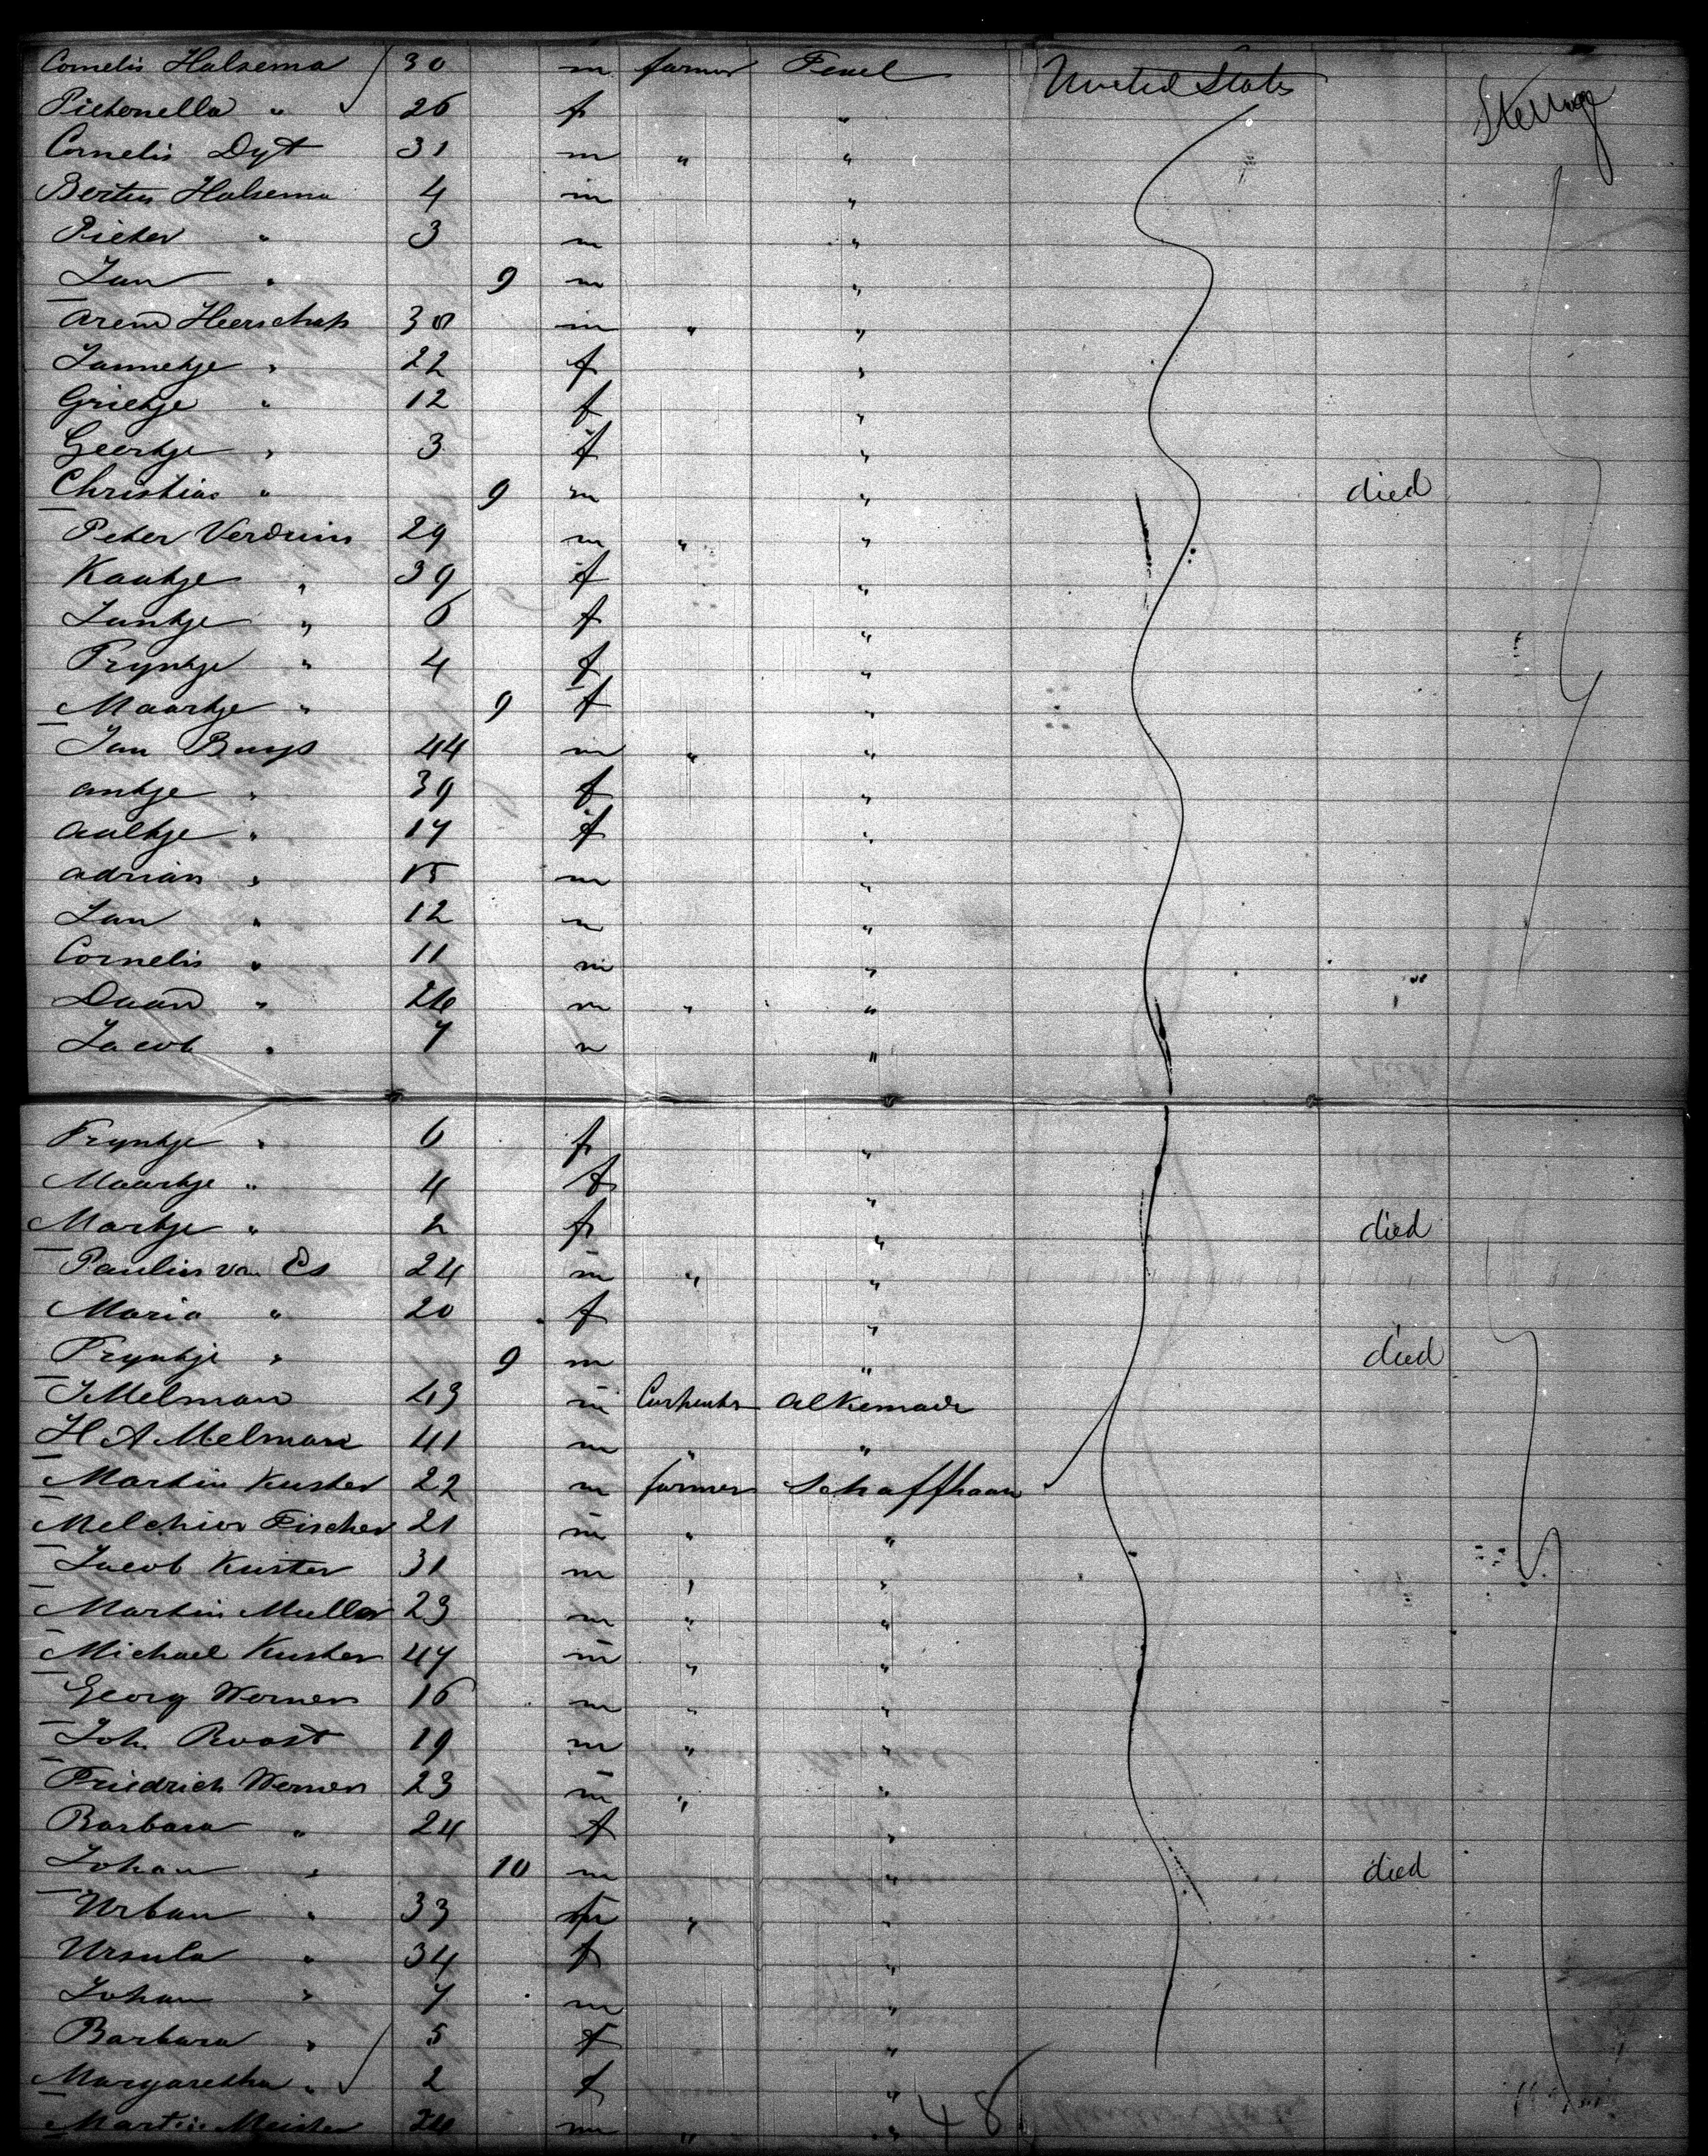 Cornelis Halsema 30 m farmer Texel United States Sterrage
Pietonella " 26 f "
Cornelis Dyt 31 m " "
Bertus Halsema 4 m "
Pieter " 3 m "
Jan " 9 m "
Arend Heerschap 30 m " "
Jannetje " 22 f "
Grietje " 12 f "
Geertje " 3 f "
Christian " 9 m " died
Peter Verduin 29 m " "
Kaatje " 39 f "
Jantje " 6 f "
Tryntje " 4 f "
Maartje " 9 f "
Jan Buys 44 m " "
antje " 39 f "
aaltje " 17 f "
adrian " 15 m "
Jan " 12 m "
Cornelis " 11 m "
Daan " m " "
Jacob " 7 m "
Tryntje " 6 f "
Maartje " 4 f "
Martje " 2 f " died
Paulus van Es 24 m " "
Maria " 20 f "
Tryntje " 9 m " died
J Melman 43 m Carpenter Alkemade
H A Melman 41 m " "
Martin Kuster 22 m farmer Schaffhaus
Melchior Fischer 21 m " "
Jacob Kuster 31 m " "
Martin Muller 23 m " "
Michael Kuster 47 m " "
Georg Werner 16 m " "
Joh. Roost 19 m " "
Friedrich Werner 23 m " "
Barbara " 24 f "
Johan " 10 m " died
Urban " 33 m " "
Ursula " 34 f "
Johan " 7 m "
Barbara " 5 f "
Margaretha " 2 f "
Martin Meister m " " 48